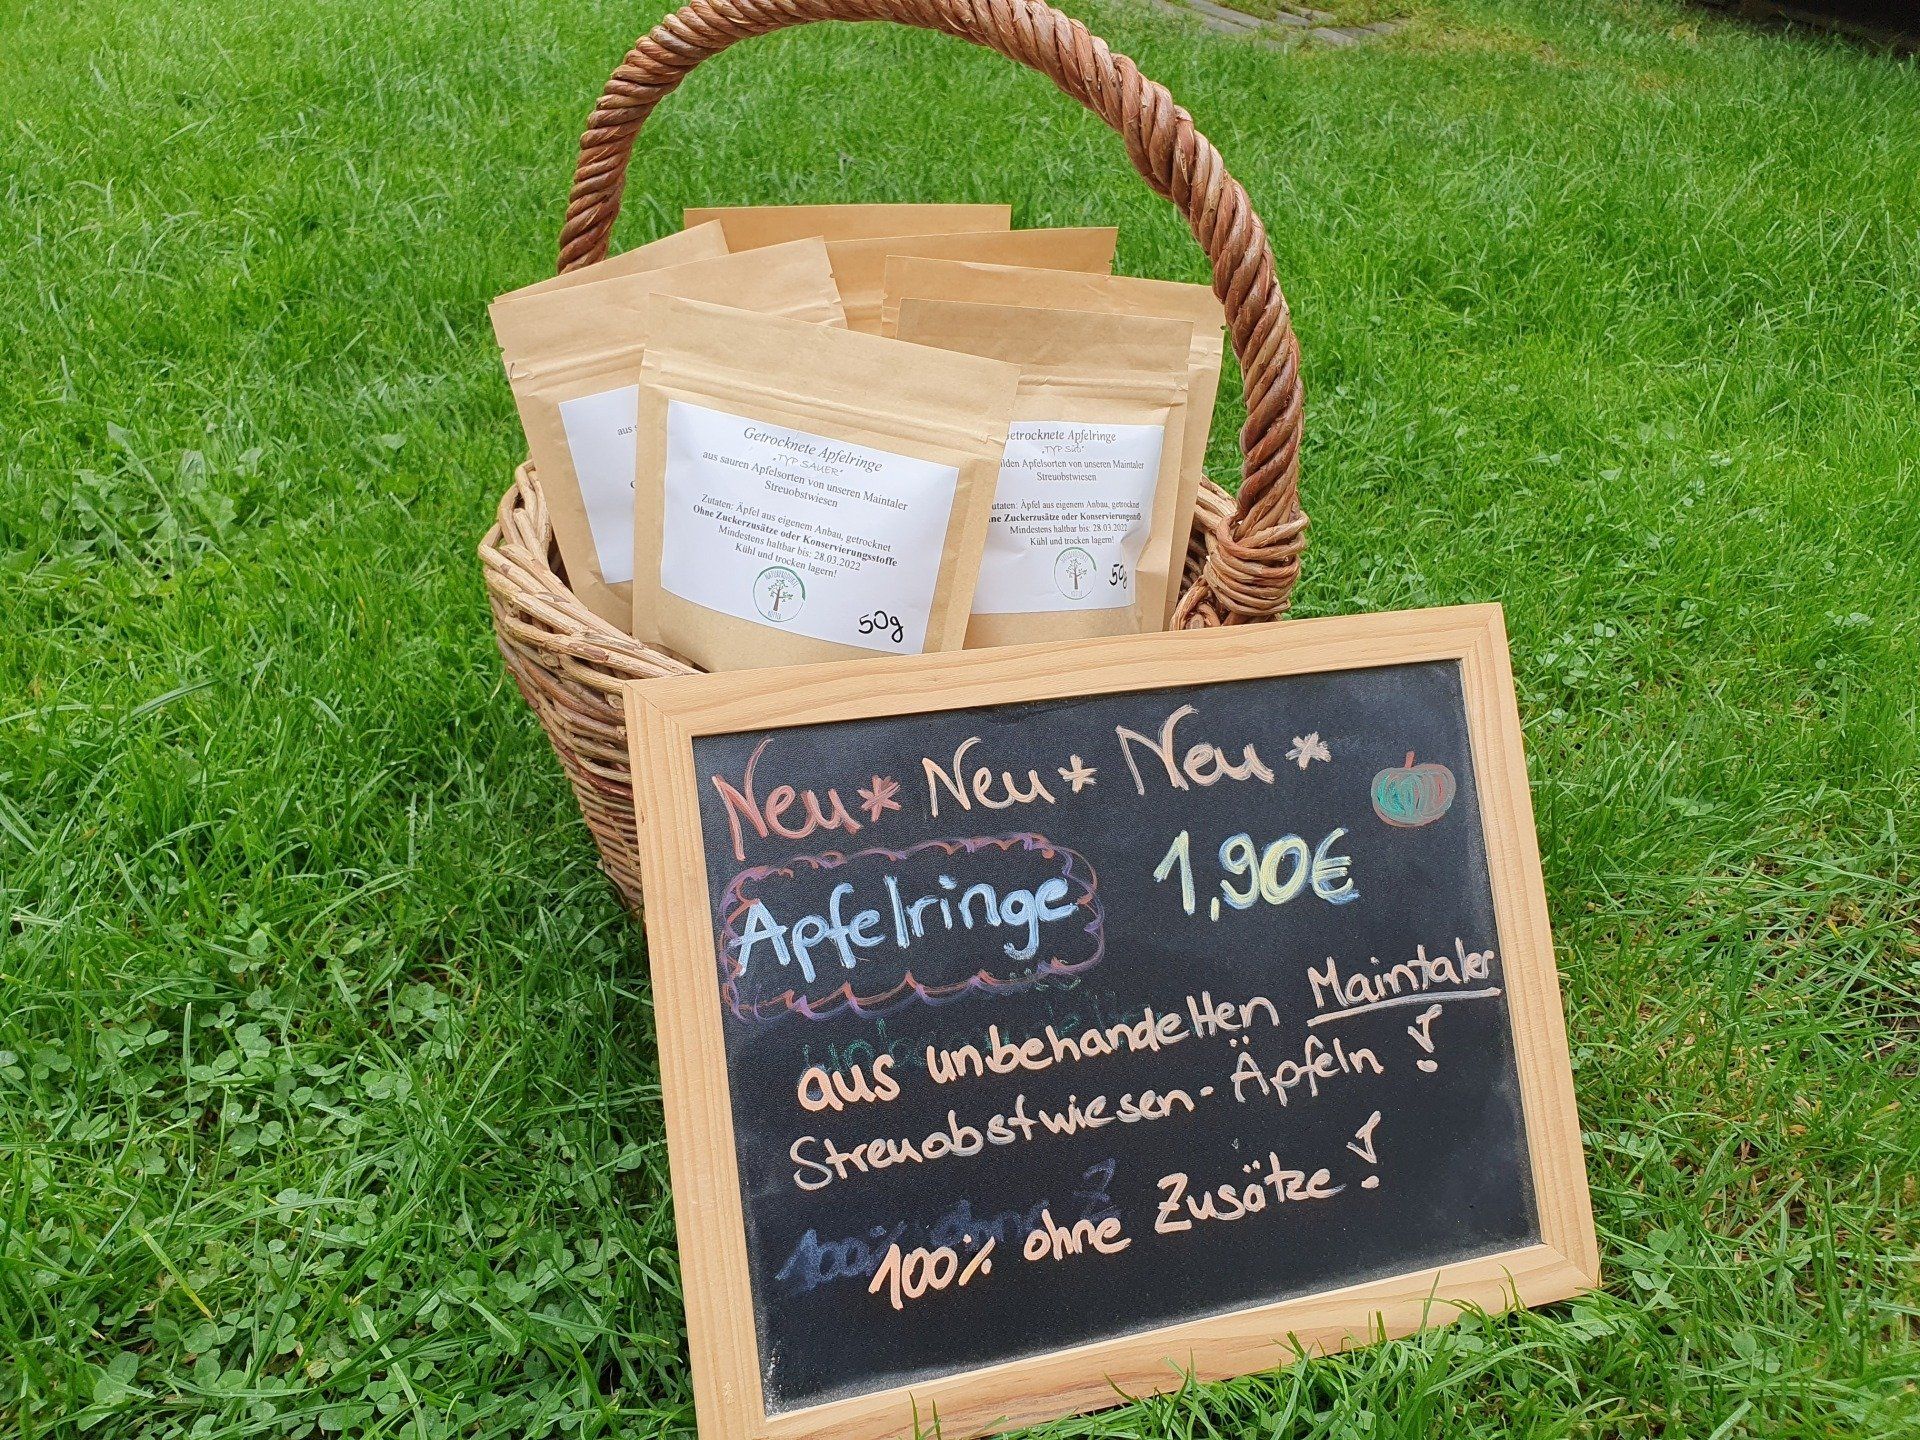 aus s
Getrocknete Apfelringe
"TYP SAUER"
aus sauren Apfelsorten von unseren Maintaler
Streuobstwiesen
Zutaten: Äpfel aus eigenem Anbau, getrocknet
Ohne Zuckerzusätze oder Konservierungsstoffe
Mindestens haltbar bis: 28.03.2022
Kühl und trocken lagern!
50g
etrocknete Apfelringe
"TYP SÜß"
ilden Apfelsorten von unseren Maintaler
Streuobstwiesen
utaten: Äpfel aus eigenem Anbau, getrocknet
ne Zuckerzusätze oder Konservierungsstoffe
Mindestens haltbar bis: 28.03.2022
Kühl und trocken lagern!
50g
Neu* Neu* Neu*
Apfelringe 1,90€
aus unbehandelten Maintaler
Streuobstwiesen-Äpfeln!
100% ohne Z
100% ohne Zusätze!